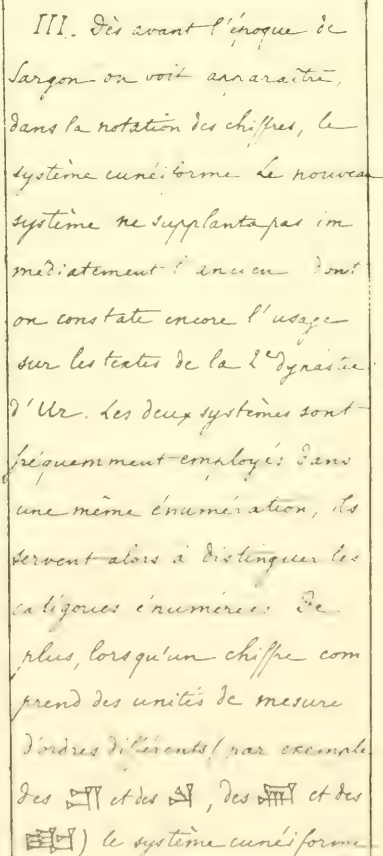 III. Dès avant l'époque de
Sargon on voit apparaître,
dans la notation des chiffres, le
système cunéiforme Le nouveau
système ne supplanta pas im
médiatement l'ancien dont
on constate encore l'usage
sur les textes de la 2e dynastie
d'Ur. Les deux systèmes sont
fréquemment employés dans
une même énumération, ils
servent alors à distinguer les
catégories énumérées. De
plus, lorsqu'un chiffre com
prend des unités de mesure
d'ordres différents (par exemple
des et des , des et des
) le système cunéiforme